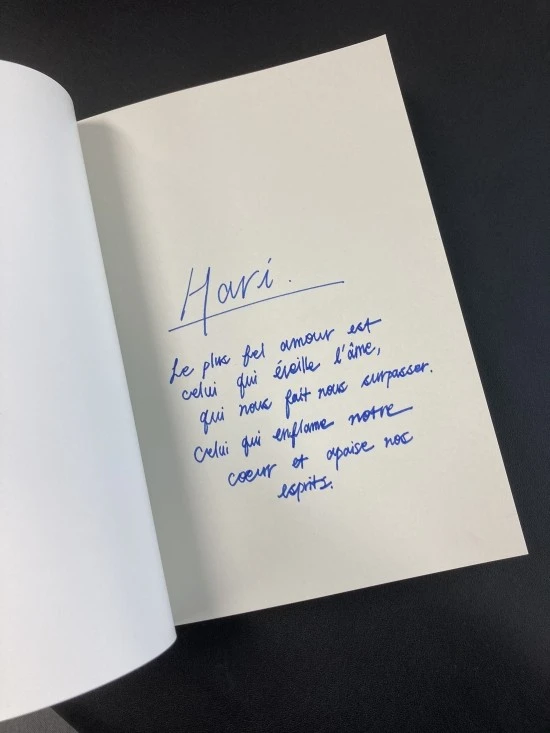 Hari.
Le plus bel amour est
celui qui éveille l'âme,
qui nous fait nous surpasser.
Celui qui enflame notre
coeur et apaise nos
esprits.